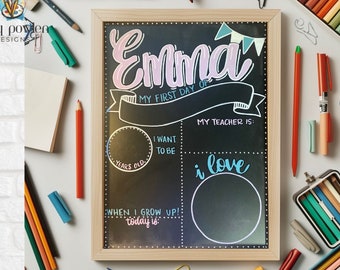 Emma
MY FIRST DAY OF
MY TEACHER IS:
I WANT
TO BE
YEARS OLD
i love
WHEN I GROW UP!
today is: